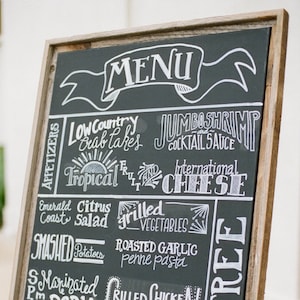 MENU
APPETIZERS
Low Country
Crab Cakes
JUMBO SHRIMP
COCKTAIL SAUCE
Tropical
FRUIT
International
CHEESE
Emerald
Coast
Citrus
Salad
grilled
VEGETABLES
SMASHED
Potatoes
ROASTED GARLIC
penne pasta
Marinated
GRILLED CHICKEN